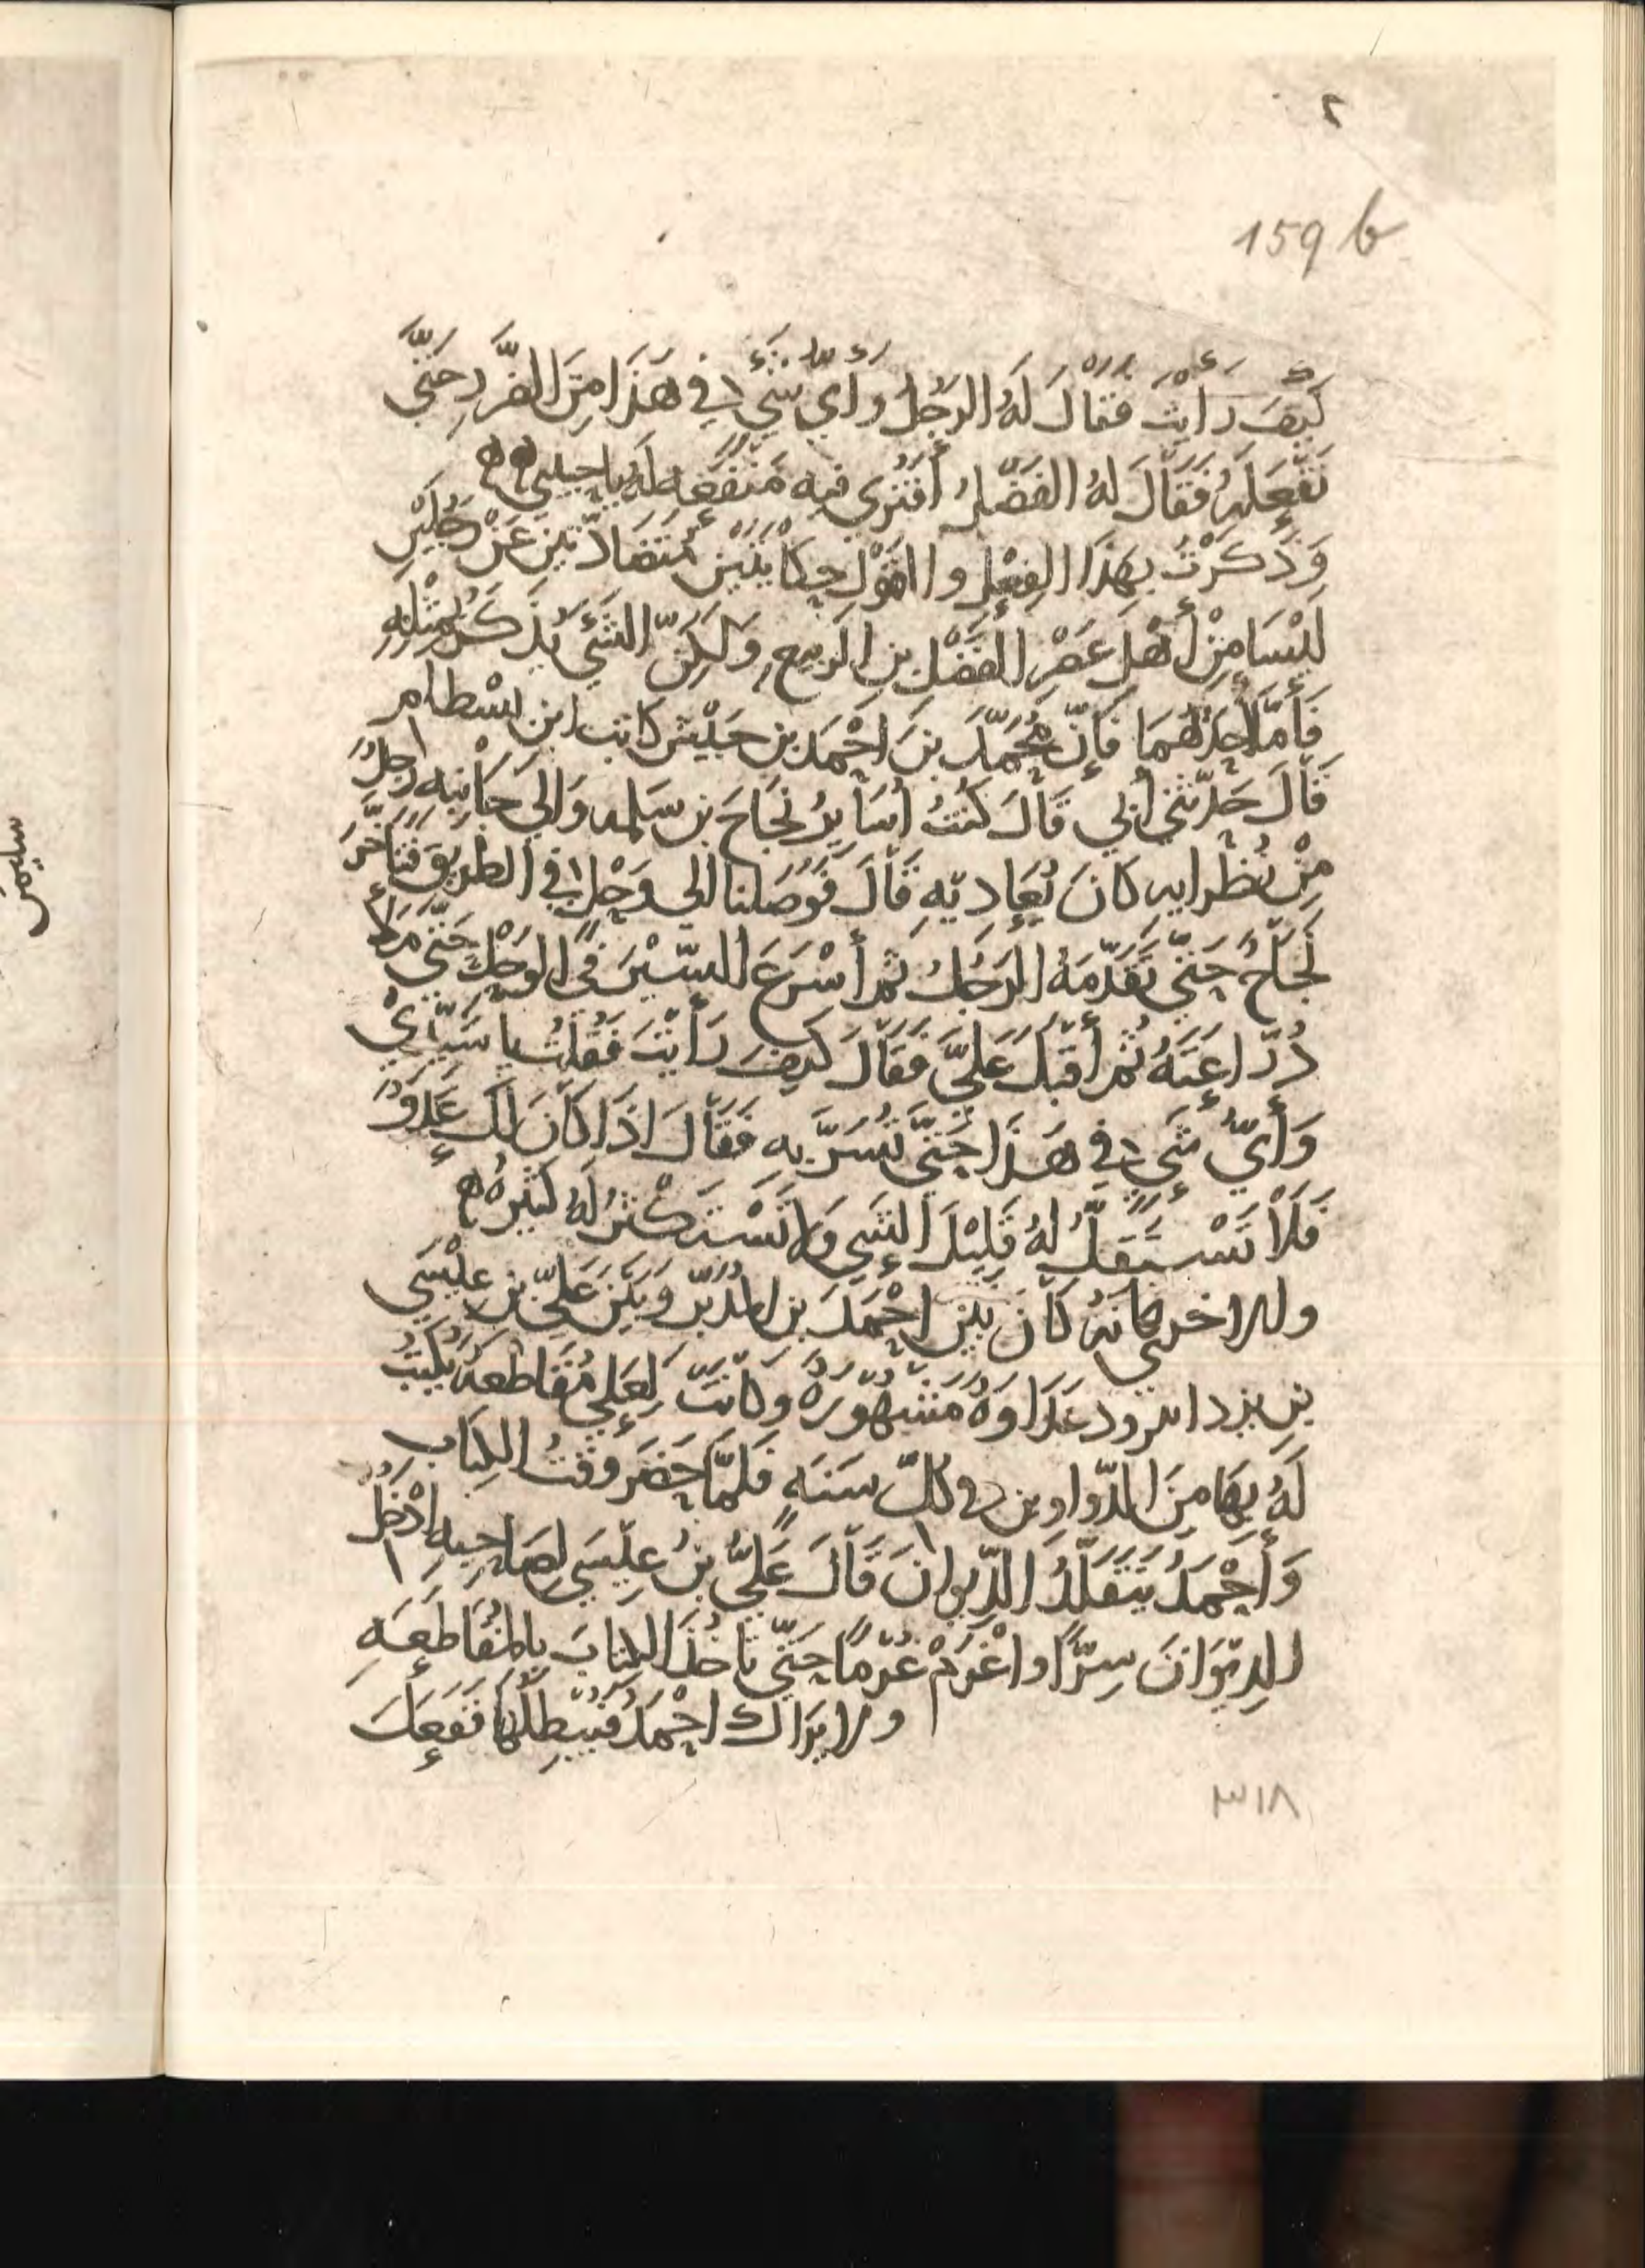 ٢
159 b
كَيْفَ رَأَيْتَ فَقَالَ لَهُ الرَجُلُ وأَيُّ شَيْءٍ في هَذَا مِنَ الضَّرَرِ حَتَّى
تَفْعَلَهُ فَقَالَ لَهُ الفَضْلُ أَفَتَرى فيه مَنْفَعَه لَهُ يا حبيبي
وَذَكَرْتُ بِهَذَا الفِعْلِ والقَوْلِ حِكَايَتَيْنِ مُتَضَادَّتَيْنِ عَنْ رَجُلَيْنِ
لَيْسَا مِنْ أَهْلِ عَصْرِ الفَضْلِ بنِ الرَبيعِ وَلَكِنّ الشَيْءَ يُذكَرُ بِمِثْلِهِ
فَأَمَّا أَحَدُهُمَا فَإِنّ مُحَمَّدَ بنَ احْمَدَ بنِ حَبَيْش كاتب ابن بسْطام
قَالَ حَدَّثَني أَبي قَالَ كُنْتُ أُسَايِرُ نَجَاحَ بن سَلمه وَالي جَانِبه رَجلٌ
مِنْ نُظَرايه كَانَ يُعَادِيهِ قَالَ فَوَصَلنا الى وَحْلٍ في الطَرِيقِ فَتَأخَّرَ
نَجَاحٌ حَتَّى تَقَدَّمَهُ الرَجُلُ ثم أَسْرَعَ السَّيْرَ في الوَحْلِ حَتَّى مَلأَ
دُرّاعَتَهُ ثُم أَقبَلَ عَلَيَّ فَقَالَ كَيفَ رَأَيْتَ فَقُلتُ يا سَيّدِيْ
وَأَيُّ شَيءٍ في هَذَا حَتَّى تُسَرَّ به فَقَالَ اذَا كَانَ لَكَ عَدُوٌّ
فَلَا تَسْتَقِلَّ لهُ قَلِيْلَ الشَيءِ وَلا تَسْتَكْثِرْ لَهُ كَثيرهُ
والاخر فانه كَانَ بَيْنَ احْمَدَ بن المُدَبّرِ وَبَيْنَ عَلِيّ بن عِيْسَى
بن يزدانيرود عَدَاوَةٌ مَشْهُورَةٌ وكانَتْ لِعَلِيٍّ مُقَاطَعَةٌ يُكْتَبُ
لَهُ بِهَا مِنَ الدّواوين في كلّ سَنَةٍ فَلَمّا حَضَرَ وَقْتُ الكِتَابِ
وَأَحْمَدُ يَتَقَلَّدُ الدّيوانَ قَالَ عَلِيُّ بنُ عِيْسَى لِصَاحِبِهِ اُدْخُلِ
الدِيوَانَ سِرًّا واغْرَمْ غُرْمًا حَتّى تَأخُذَ الكِتَابَ بالمُقَاطَعَهِ
ولا يَرَاكَ احْمَدُ فَيُبْطِلَهَا فَفَعَلَ
٣١٨